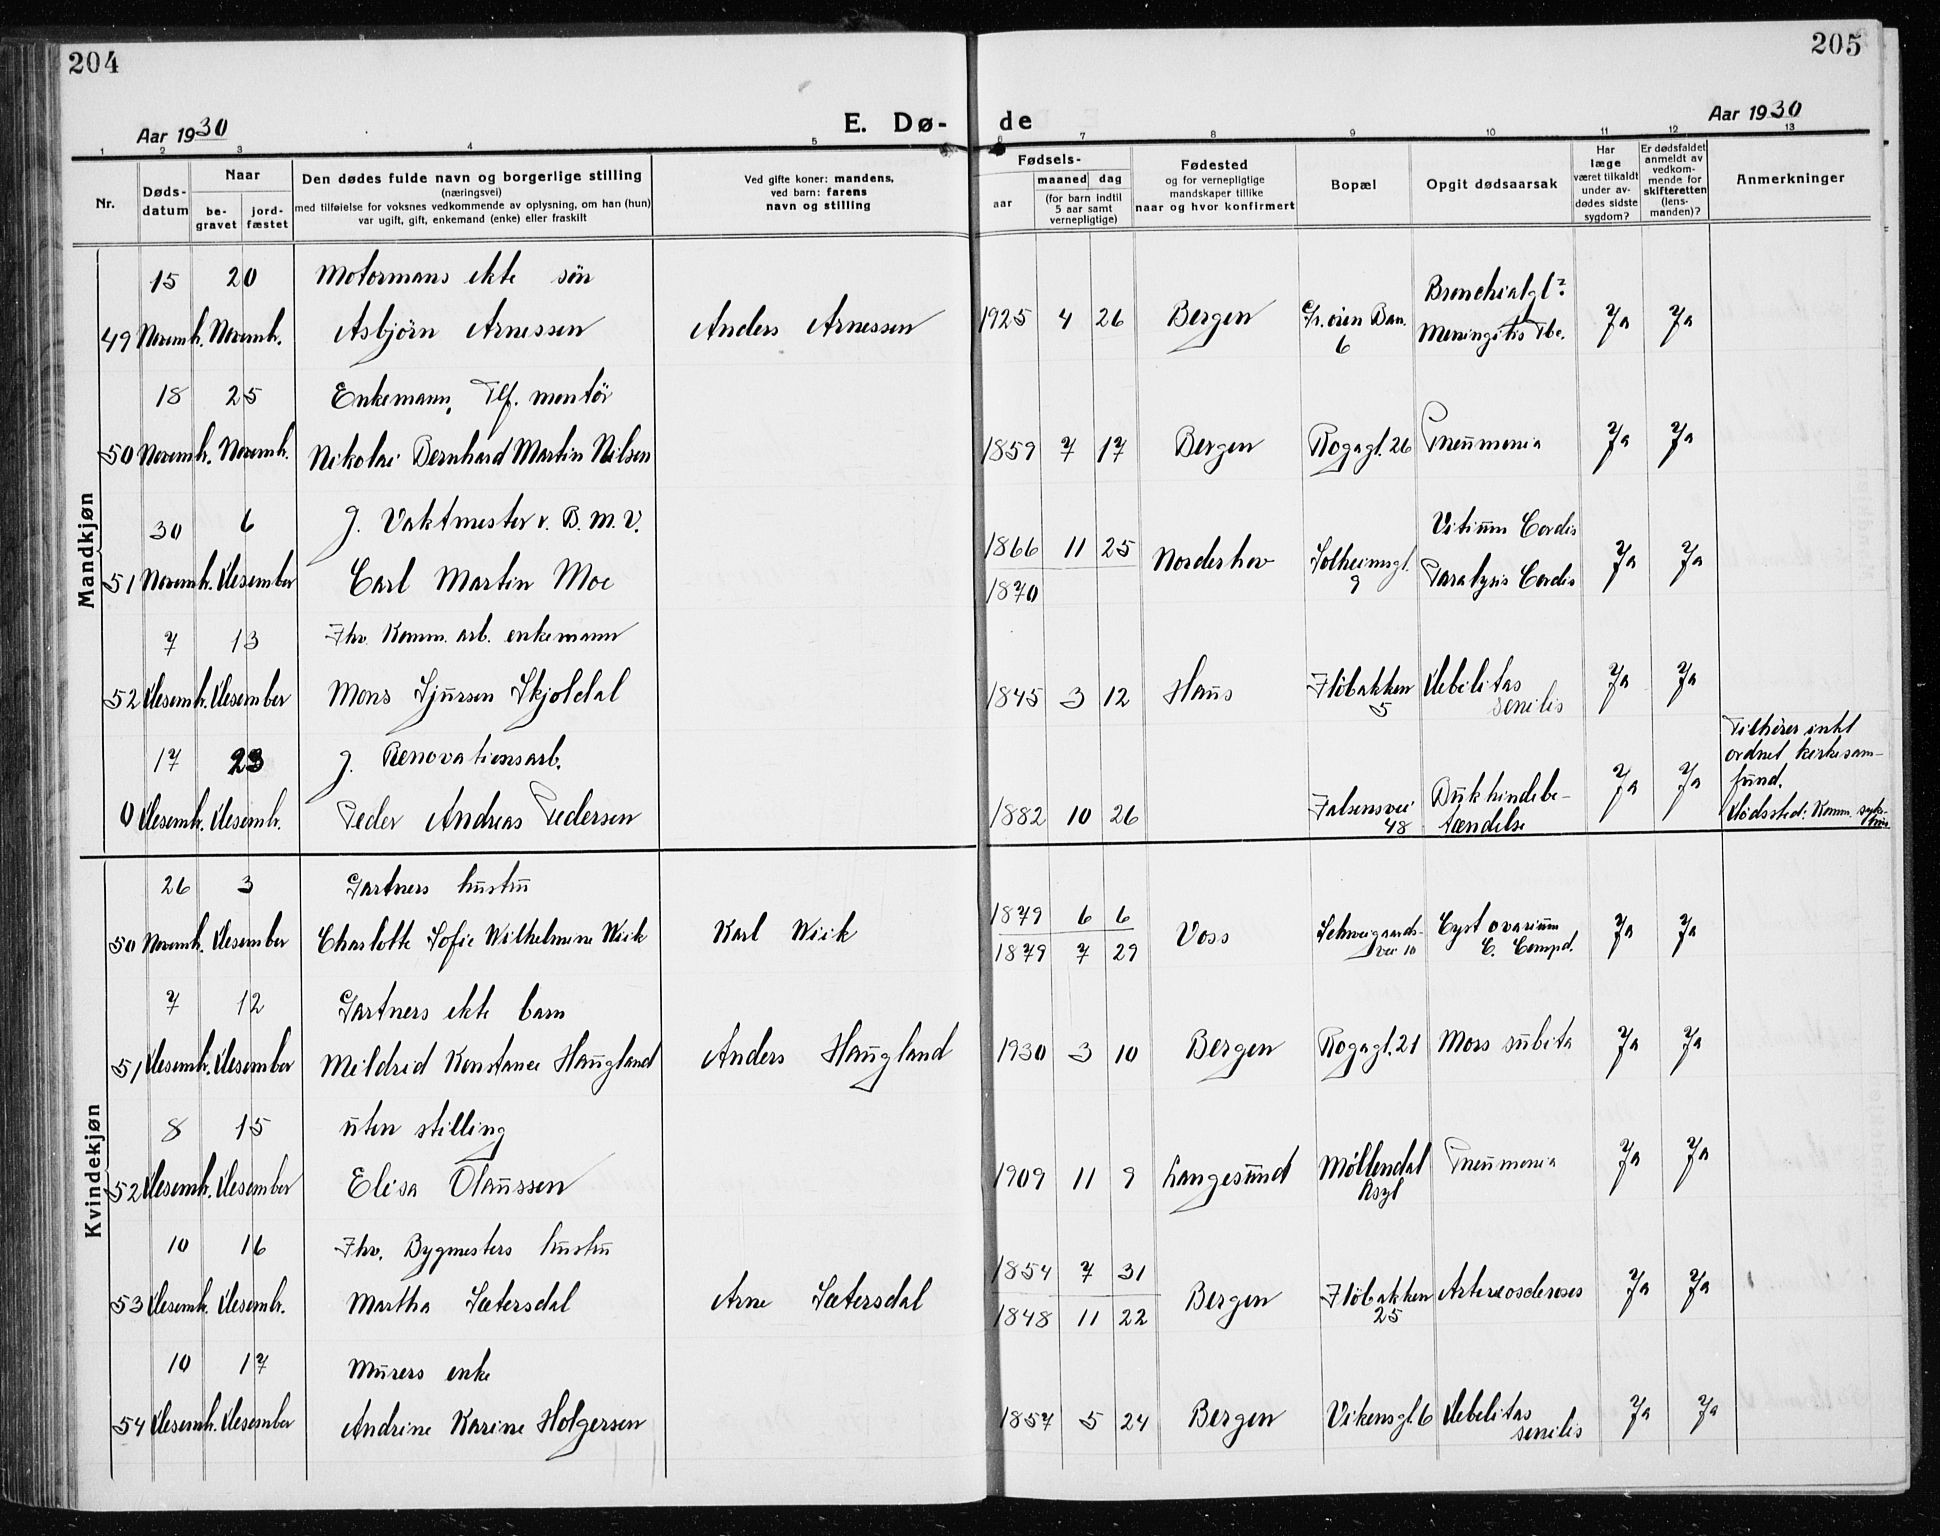 204
205
Aar 1930
E. Dø-
de
Aar 1930
1 2 3 4 5 6 7 8 9 10 11 12 13
Nr.
Døds-
datum
Naar
be-
gravet
jord-
fæstet
Den dødes fulde navn og borgerlige stilling
(næringsvei)
med tilføielse for voksnes vedkommende av oplysning, om han (hun)
var ugift, gift, enkemand (enke) eller fraskilt
Ved gifte koner: mandens,
ved barn: farens
navn og stilling
Fødsels-
aar
maaned
dag
(for barn indtil
5 aar samt
vernepligtige)
Fødested
og for vernepligtige
mandskaper tillike
naar og hvor konfirmert
Bopæl
Opgit dødsaarsak
Har
læge
været tilkaldt
under av-
dødes sidste
sygdom?
Er dødsfaldet
anmeldt av
vedkom-
mende for
skifteretten
(lens-
manden)?
Anmerkninger
Mandkjøn
15 20 Motormans ekte søn
49 Novemb. Novemb. Asbjørn Arnessen Anders Arnessen 1925 4 26 Bergen
6
Meningitis Tbc. Ja Ja
18 25 Enkemann, Tlf. montør
50 Novemb. Novemb. Nikolai Bernhard Martin Nilsen 1859 7 17 Bergen Rogagt. 26 Pneumonia Ja Ja
30 6 g. Vaktmester v. B. M. V. Vitium Cordis
51 Novemb. Desember Carl Martin Moe 1866 11 25 Norderhov Solheimsgt. Paralysis Cordis Ja Ja
1870 9
7 13 Fhv. Komm. arb. enkemann
52 Desemb. Desember Mons Sjursen Skjoldal 1845 3 12 Haus Fløbakken Debilitas Ja Ja
5 senilis
17 23 g. Renovationsarb. Tilhører intet
ordnet kirkesam-
fund.
0 Desemb. Desemb. Peder Andreas Pedersen 1882 10 26 Falsensvei Bukhindebe- Ja Ja
48 tændelse Dødssted: Komm. syke-
hus
Kvindekjøn
26 3 Gartners hustru
50 Novemb. Desember Charlotte Sofie Wilhelmine Wiik Karl Wiik 1879 6 6 Voss Schweigaards- Cyst ovarium Ja Ja
1879 7 29 vei 10 C. Compd.
7 12 Gartners ekte barn
51 Desemb. Desember Mildrid Konstance Haugland Anders Haugland 1930 3 10 Bergen Rogagt. 21 Mors subita Ja Ja
8 15 uten stilling
52 Desemb. Desember Elisa Olaussen 1909 11 9 Langesund Møllendal Pneumonia Ja Ja
Asyl
10 16 Fhv. Bygmesters hustru
53 Desemb. Desemb. Martha Sætersdal Arne Sætersdal 1854 7 31 Bergen Fløbakken Ja Ja
1848 11 22 25
10 17 Murers enke
54 Desemb. Desember Andrine Karine Holgersen 1857 5 24 Bergen Vikensgt. 6 Debilitas Ja Ja
senilis